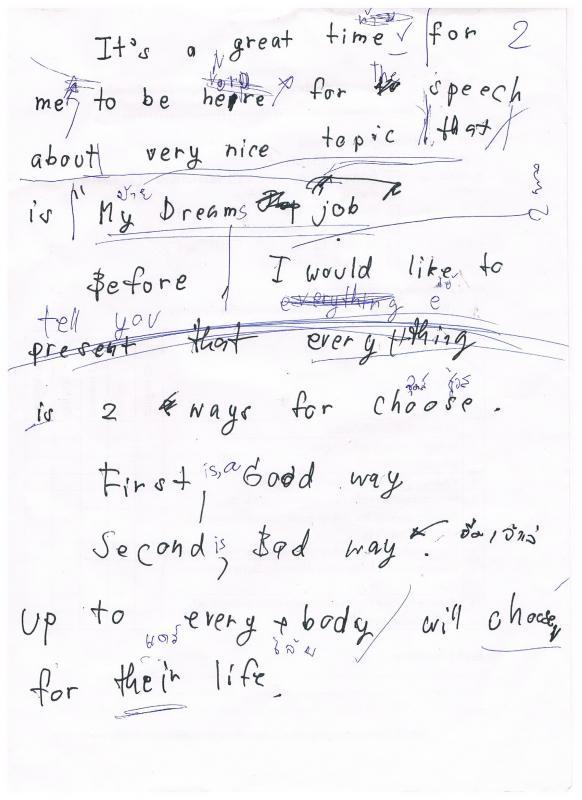 It's a great time for 2
me to be here for the speech
about very nice topic that
is " My Dreams job
Before I would like to
everything e
tell you
present that everything
is 2 ways for choose.
First is, a Good way
Second, is Bad way.
up to every body will choose,
for their life.